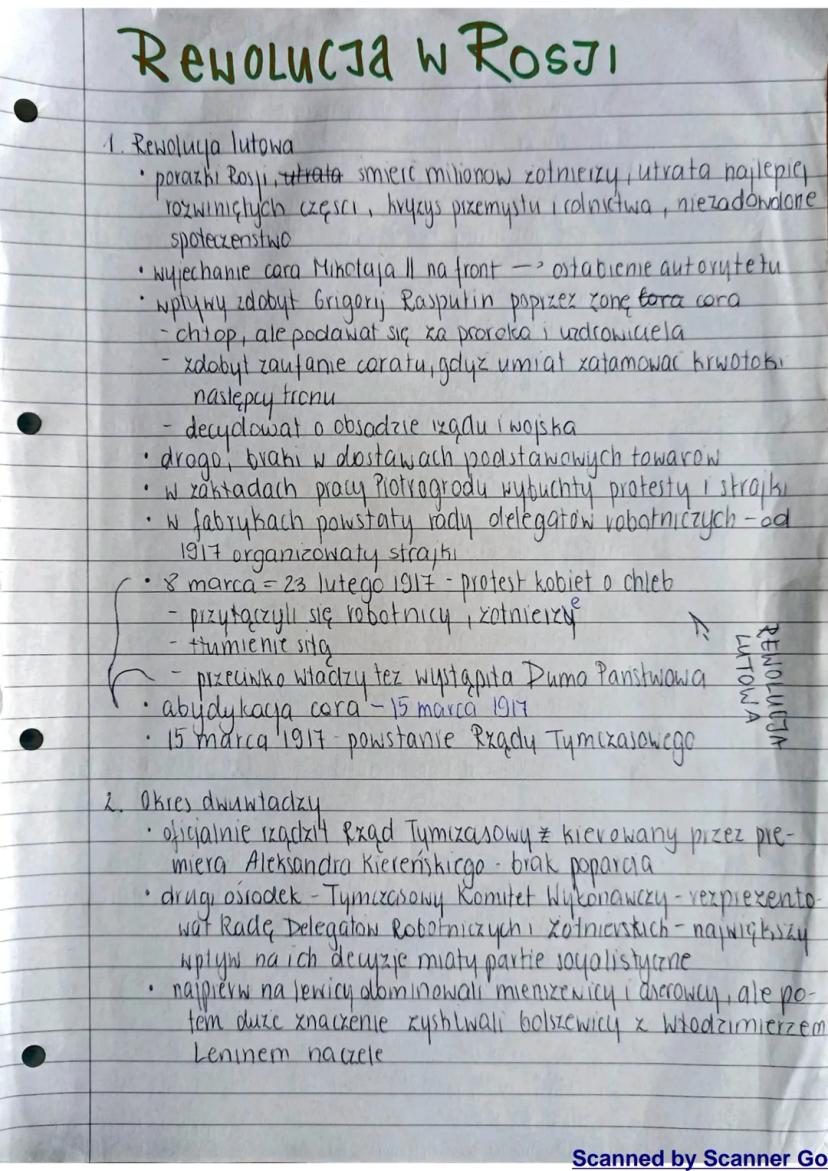 Rewolucja w Rosji
1. Rewolucja lutowa
• porażki Rosji, utrata śmierć milionów żołnierzy, utrata najlepiej
rozwiniętych części, kryzys przemysłu i rolnictwa, niezadowolone
społeczeństwo
• wyjechanie cara Mikołaja II na front → osłabienie autorytetu
• wpływy zdobył Grigorij Rasputin poprzez żonę cara
- chłop, ale podawał się za proroka i uzdrowiciela
- zdobył zaufanie caratu, gdyż umiał zatamować krwotoki
następcy tronu
- decydował o obsadzie rządu i wojska
• drogo, braki w dostawach podstawowych towarów
• w zakładach pracy Piotrogrodu wybuchły protesty i strajki
• w fabrykach powstały rady delegatów robotniczych - od
1917 organizowały strajki
• 8 marca = 23 lutego 1917 - protest kobiet o chleb
- przyłączyli się robotnicy, żołnierzye
- tłumienie siłą
- przeciwko władzy też wystąpiła Duma Państwowa
REWOLUCJA
LUTOWA
• abydykacja cara - 15 marca 1917
• 15 marca 1917 - powstanie Rządy Tymczasowego
2. Okres dwuwładzy
• oficjalnie rządził Rząd Tymczasowy z kierowany przez pre-
miera Aleksandra Kiereńskiego - brak poparcia
• drugi ośrodek - Tymczasowy Komitet Wykonawczy - rezprezento-
wał Radę Delegatów Robotniczych i Żołnierskich - największy
wpływ na ich decyzje miały partie socjalistyczne
• najpierw na lewicy dominowali mienszewicy i eserowcy, ale po-
tem duże znaczenie zyskiwali bolszewicy z Włodzimierzem
Leninem na czele
Scanned by Scanner Go